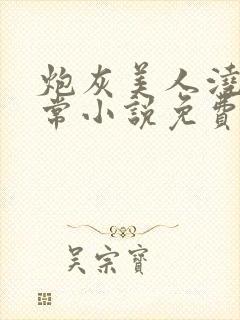 炮灰美人澆
常小說免費
吴宗寶